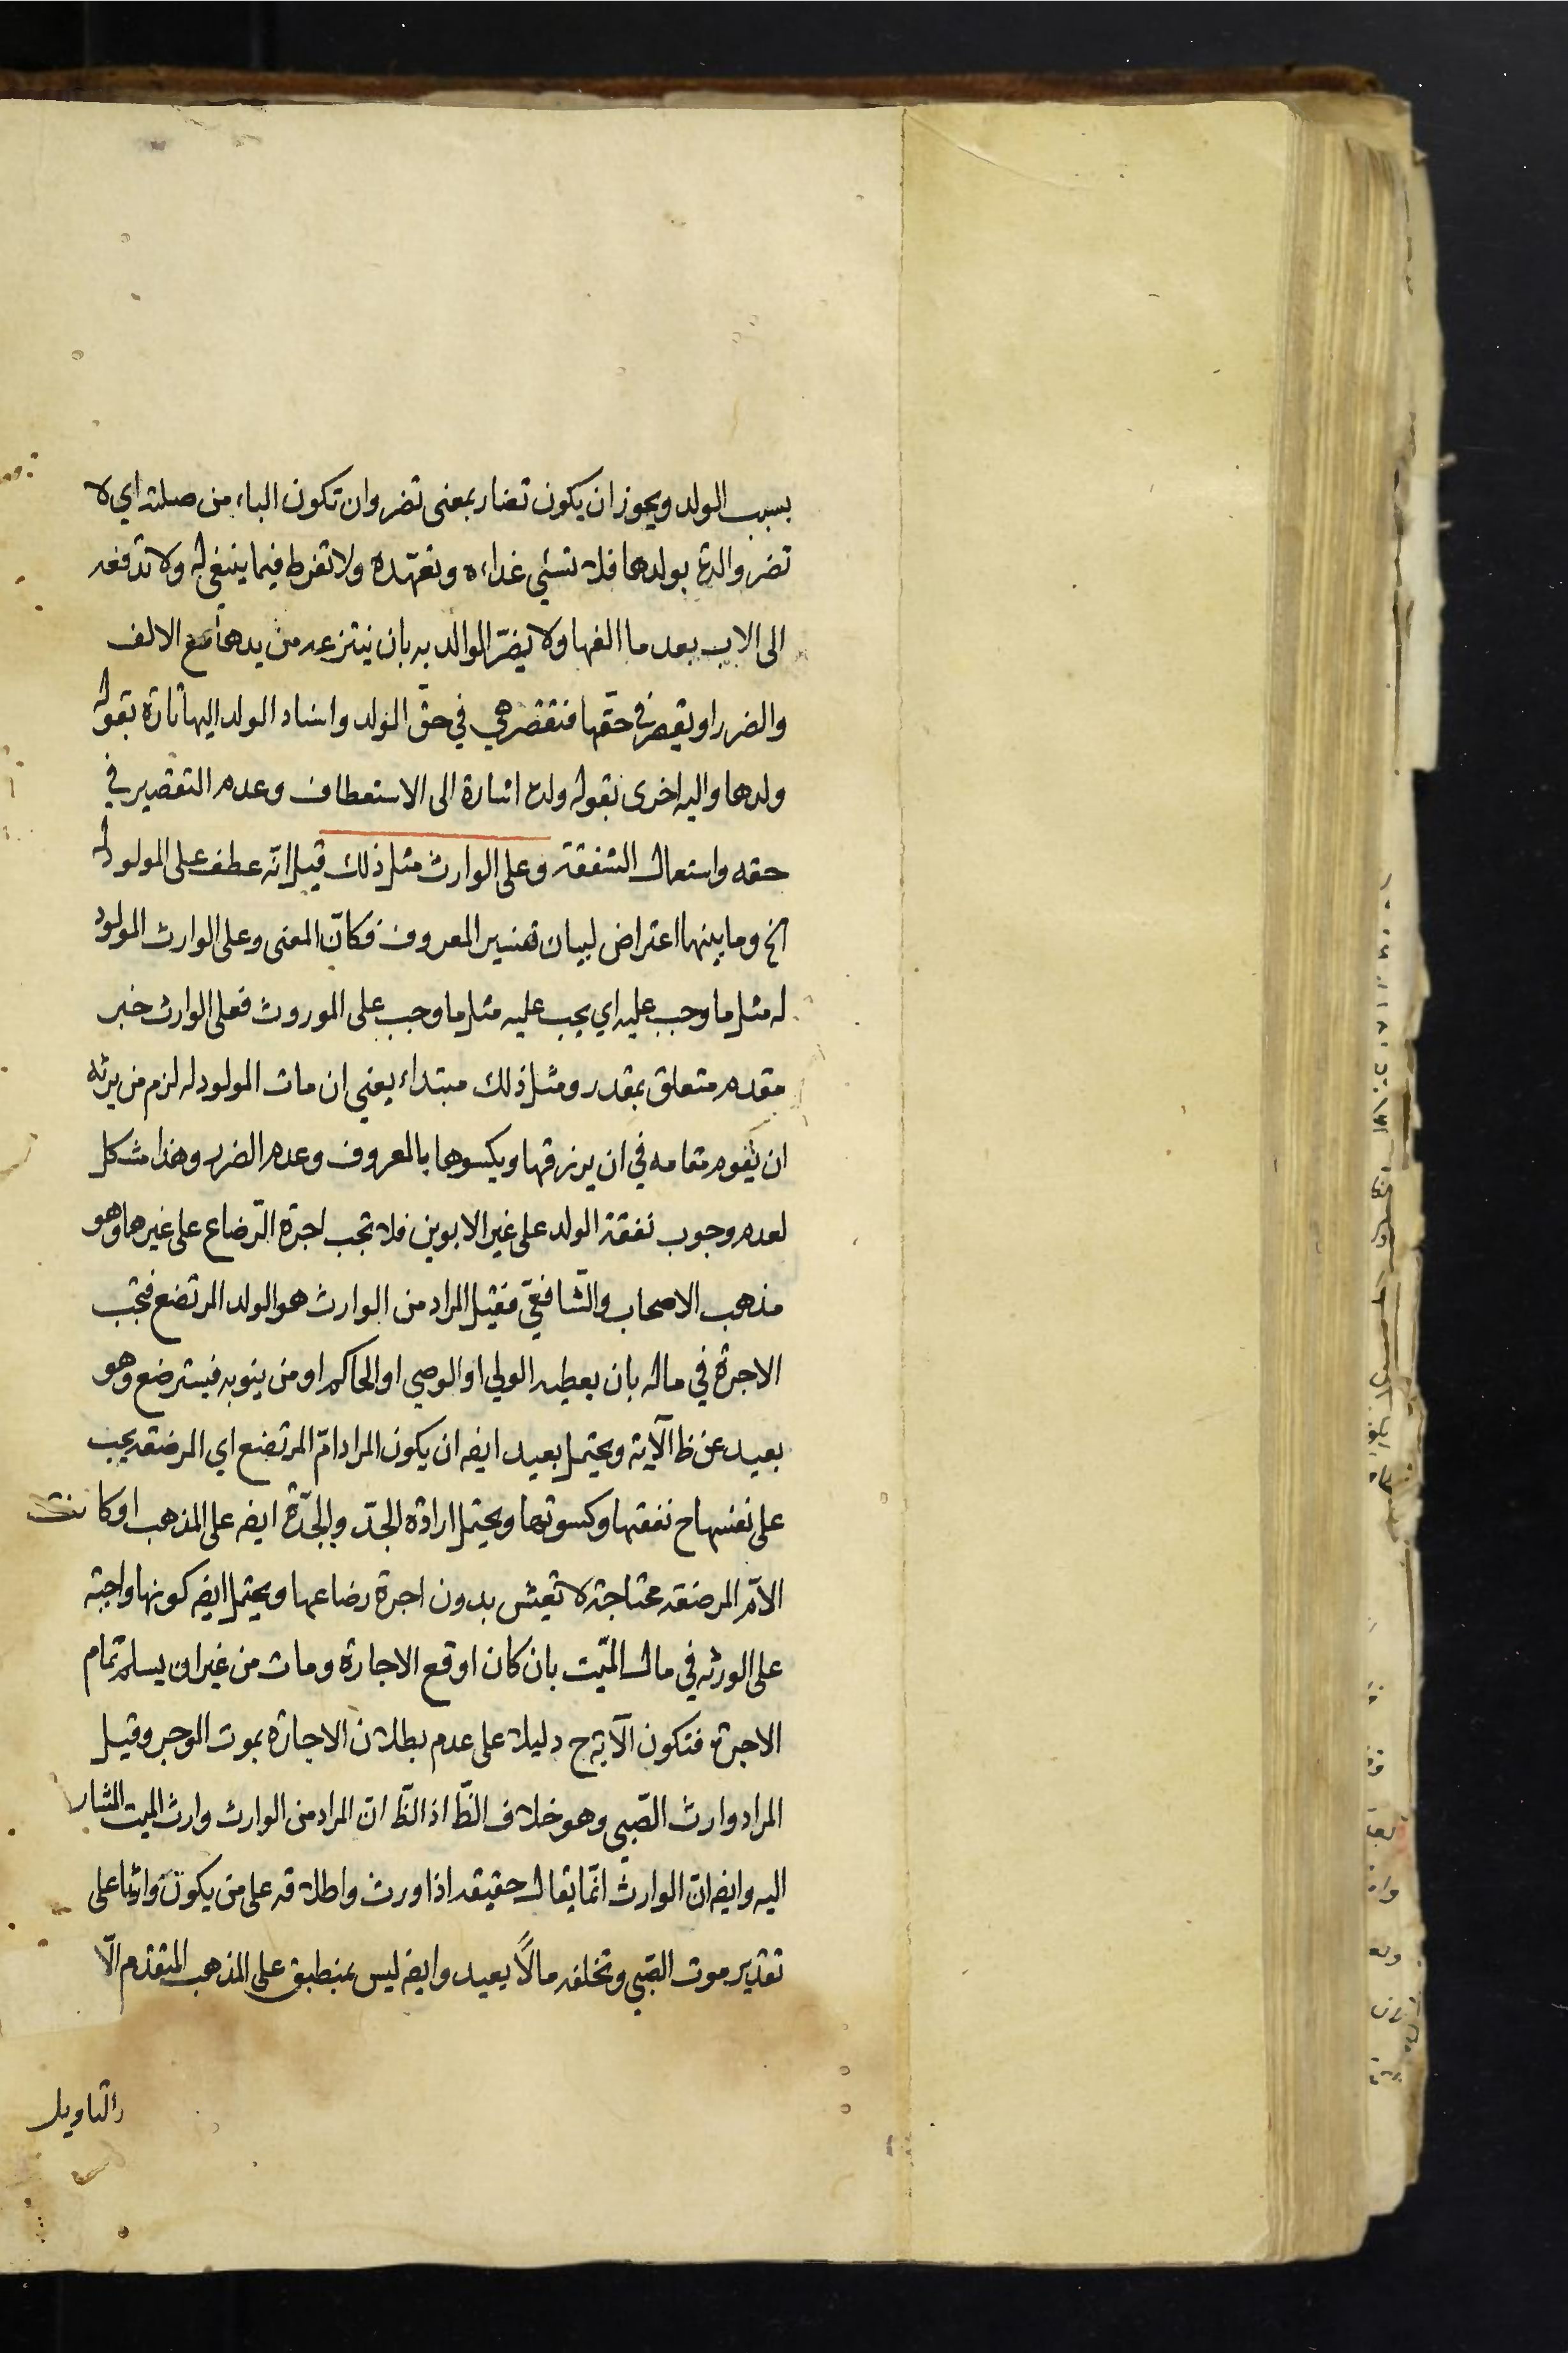 بسبب الولد ويجوز ان يكون تضار بمعنى تضر وان تكون الباء من صلته اي لا
تضر والدة بولدها فلا تسئي غذاءه وتعهّده ولا تفرط فيما ينبغي له ولا تدفعه
الى الاب بعد ما الفها ولا يضرّ الوالد به بان ينتزعه من يدها مع الالف
والضرر او يقصر في حقّها فتقصر هي في حقّ الولد واسناد الولد اليها تارة بقوله
ولدها واليه اخرى بقوله ولده اشارة الى الاستعطاف وعدم التقصير في
حقه واستعمال الشفقة وعلى الوارث مثل ذلك قيل انّه عطف على المولود له
الخ وما بينهما اعتراض لبيان تفسير المعروف فكانّ المعنى وعلى الوارث المولود
له مثل ما وجب عليه اي يجب عليه مثل ما وجب على الموروث فعلى الوارث خبر
مقدم متعلق بمقدر ومثل ذلك مبتداء يعني ان مات المولود له لزم من يرثه
ان يقوم مقامه في ان يرزقها ويكسوها بالمعروف وعدم الضرر وهذا مشكل
لعدم وجوب نفقة الولد على غير الابوين فلا تجب اجرة الرّضاع على غيرهما وهو
مذهب الاصحاب والشّافعيّ فقيل المراد من الوارث هو الولد المرتضع فتجب
الاجرة في ماله بان يعطيه الولي او الوصي او الحاكم او من ينوبه فيسترضع وهو
بعيد عن ظ الآية ويحتمل بعيد ايضه ان يكون المراد امّ المرتضع اي المرضعه يجب
على نفسها ح نفقتها وكسوتها ويحتمل ارادة الجدّ والجدّة ايضه على المذهب او كانت
الامّ المرضعه محتاجة لا تعيش بدون اجرة رضاعها ويحتمل ايضه كونها واجبة
على الورثه في مال الميّت بان كان اوقع الاجارة ومات من غير ان يسلم تمام
الاجرة فتكون الآية ح دليلا على عدم بطلان الاجارة بموت الموجر وقيل
المراد وارث الصّبي وهو خلاف الظّ اذ الظّ انّ المراد من الوارث وارث الميت المشار
اليه وايضه انّ الوارث انّما يقال حقيقه اذا ورث واطلاقه على من يكون وارثا على
تقدير موت الصّبي وتخلفه مالًا بعيد وايضه ليس بمنطبق على المذهب المتقدّم الّا
بالتاويل